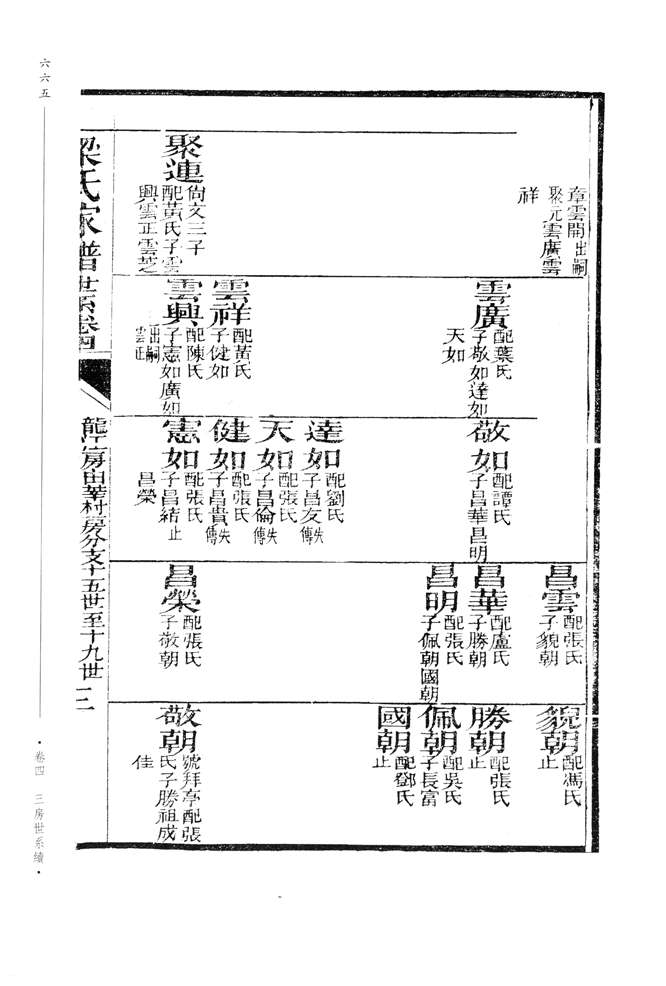 六六五
章雲開出嗣
聚元雲廣雲
祥
聚連
尙文三子
配黃氏子雲
興雲正雲芝
雲廣
配葉氏
子敬如達如
天如
雲祥
配黃氏
子健如
雲興
配陳氏
子憲如廣如
出嗣
雲正
敬如
配譚氏
子昌華昌明
達如
配劉氏
子昌友失傳
天如
配張氏
子昌倫失傳
健如
配張氏
子昌貴失傳
憲如
配張氏
子昌結止
昌榮
昌雲
配張氏
子貌朝
昌華
配盧氏
子勝朝
昌明
配張氏
子佩朝國朝
昌榮
配張氏
子敬朝
貌朝
配馮氏
止
勝朝
配張氏
止
佩朝
配吳氏
子長富
國朝
配鄧氏
止
敬朝
號拜亭配張
氏子勝祖成
佳
梁氏家譜世系卷四
龍江房由莘村房分支十五世至十九世
三
·卷四 三房世系續·